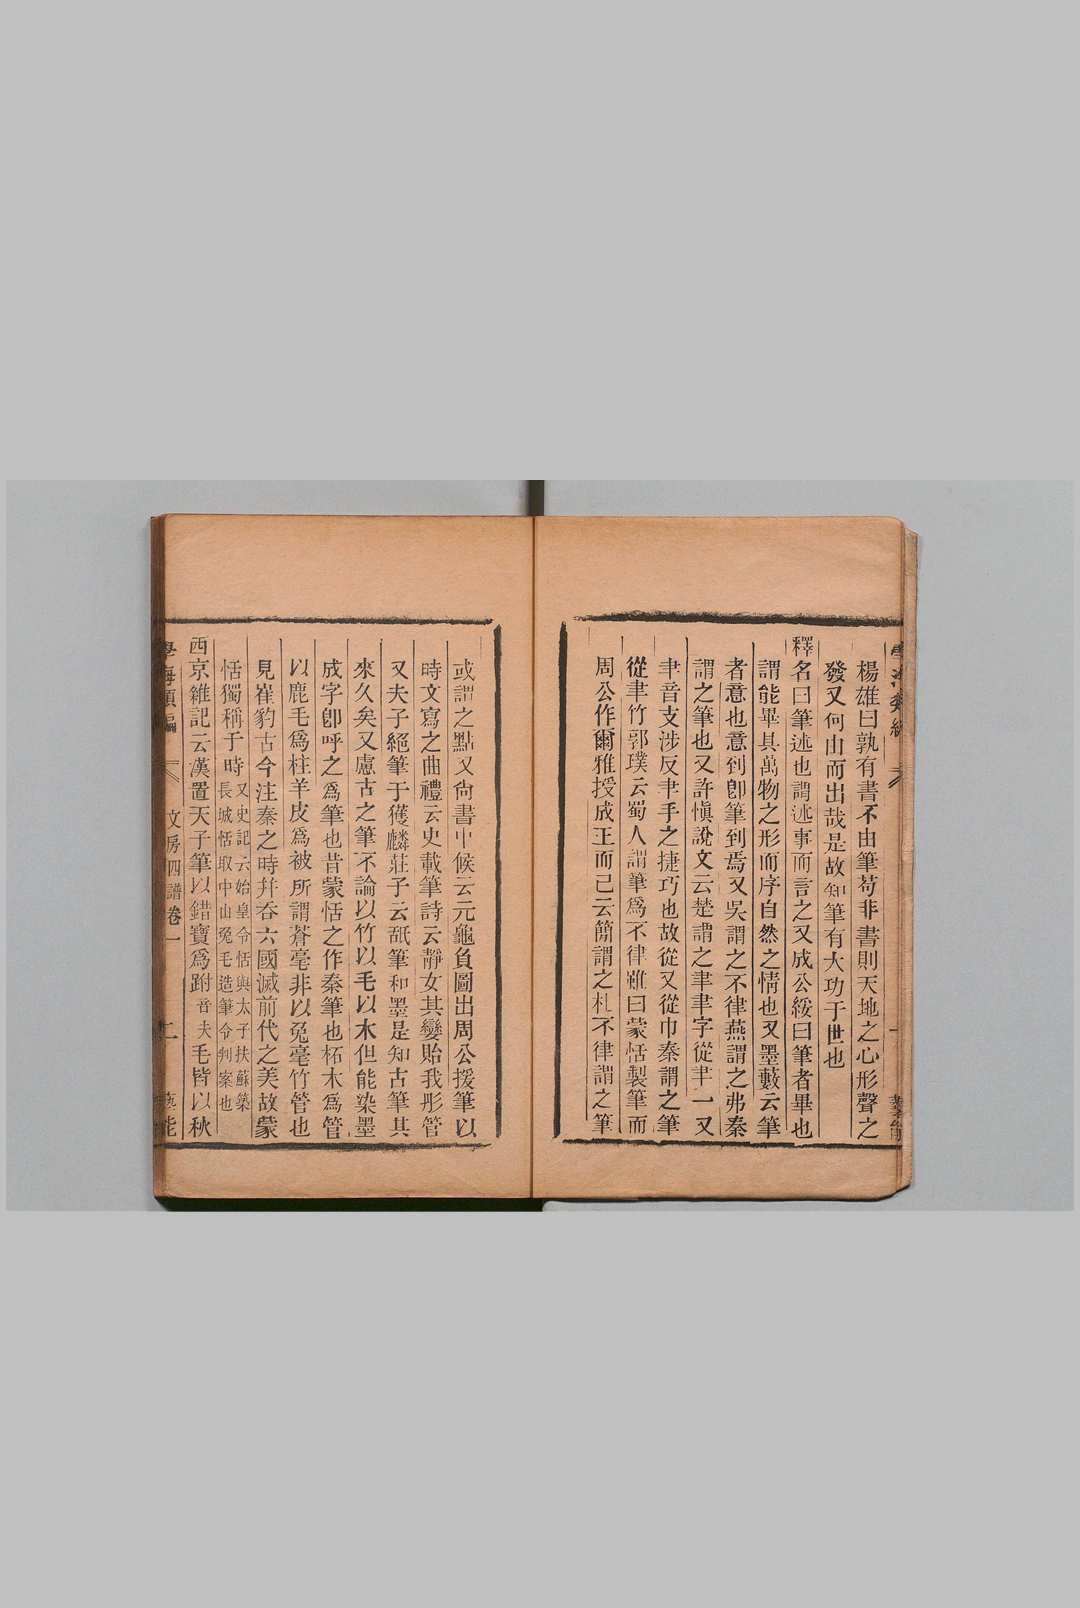 楊雄曰孰有書不由筆苟非書則天地之心形聲之
發又何由而出哉是故知筆有大功于世也
釋名曰筆述也謂述事而言之又成公綏曰筆者畢也
謂能畢具萬物之形而序自然之情也又墨藪云筆
者意也意到卽筆到焉又吳謂之不律燕謂之弗秦
謂之筆也又許愼說文云楚謂之聿聿字從𦘒一又
𦘒音支涉反𦘒手之捷巧也故從又從巾秦謂之筆
從聿竹郭璞云蜀人謂筆爲不律雖曰蒙恬製筆而
周公作爾雅授成王而己云簡謂之札不律謂之筆
或謂之點又尙書中候云元龜負圖出周公援筆以
時文寫之曲禮云史載筆詩云靜女其孌貽我彤管
又夫子絕筆于獲麟莊子云舐筆和墨是知古筆其
來久矣又慮古之筆不論以竹以毛以木但能染墨
成字卽呼之爲筆也昔蒙恬之作秦筆也柘木爲管
以鹿毛爲柱羊皮爲被所謂蒼毫非以兔毫竹管也
見崔豹古今注秦之時幷吞六國滅前代之美故蒙
恬獨稱于時又史記云始皇令恬與太子扶蘇築長城恬取中山兔毛造筆令判案也
西京雜記云漢置天子筆以錯寶爲跗音夫毛皆以秋
學海類編
文房四譜卷一
二
藝能